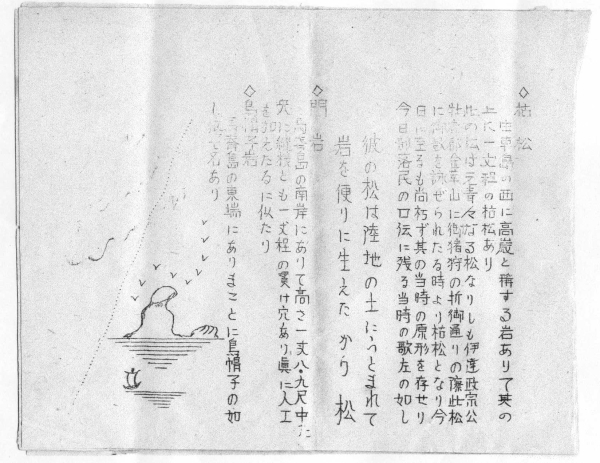 ◇枯松
の西に高嶽と称する岩ありて其の
上に一丈程の枯松あり
此の松は元青々なる松なりしも伊達政宗公
牡鹿郡金華山に御猪狩の折御通りの際此松
に御歌を詠ぜられたる時より枯松となり今
日に至るも尚朽ず其の当時の原形を存せり
今日部落民の口伝に残る当時の歌左の如し
彼の松は陸地の土にうとまれて
岩を便りに生えたから松
◇明岩
島の南岸にありて高さ一丈八・九尺中に
縦横とも一丈程の貫け穴あり真に人工
を加えたるに似たり
◇烏帽子岩
島の東端にありまことに烏帽子の如
し 名あり